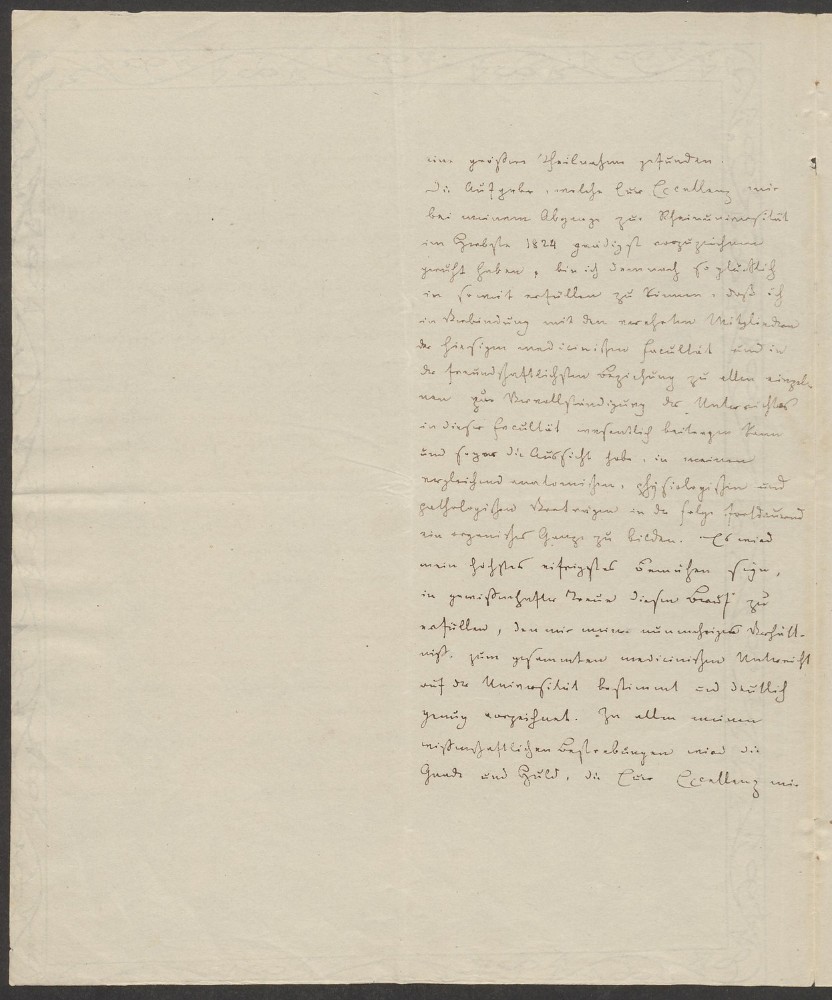 eine größere Theilnahme gefunden.
Die Aufgabe, welche Eure Excellenz mir
bei meinem Abgange zur Rheinuniversität
im Herbste 1824 gnädigst vorzuzeichnen
geruht haben, bin ich demnach so glücklich
in soweit erfüllen zu können, daß ich
in Verbindung mit den verehrten Mitgliedern
der hiesigen medicinischen Facultät und in
der freundschaftlichsten Beziehung zu allen einzel-
nen zur Vervollständigung des Unterrichtes
in dieser Facultät wesentlich beitragen kann
und sogar die Aussicht habe, in meinen
vergleichend anatomischen, physiologischen und
pathologischen Vorträgen in der Folge fortdauernd
ein organisches Ganze zu bilden. Es wird
mein höchstes eifrigstes Bemühen seyn,
in gewissenhafter Treue diesen Beruf zu
erfüllen, den mir meine nunmehriges Verhält-
niß zum gesammten medicinischen Unterricht
auf der Universität bestimmt und deutlich
genug vorzeichnet. Zu allen meinen
wissenschaftlichen Bestrebungen wird die
Gnade und Huld, die Eure Excellenz mir